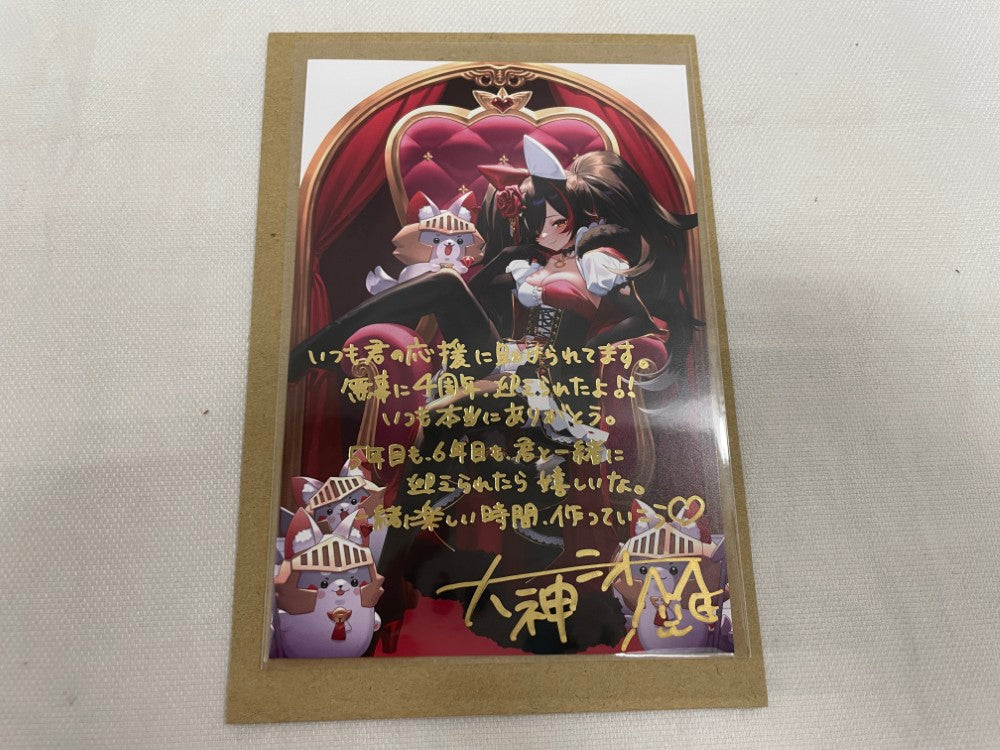 いつも君の応援に助けられてます。
無事に4周年、迎えられたよ!!
いつも本当にありがとう。
5年目も、6年目も、君と一緒に
迎えられたら嬉しいな。
一緒に楽しい時間、作っていこう♡
大神ミオ